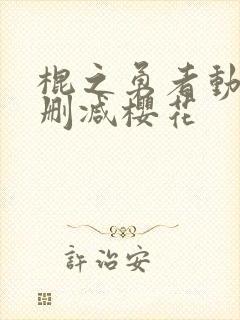 棍之勇者動
刪减櫻花
許治安